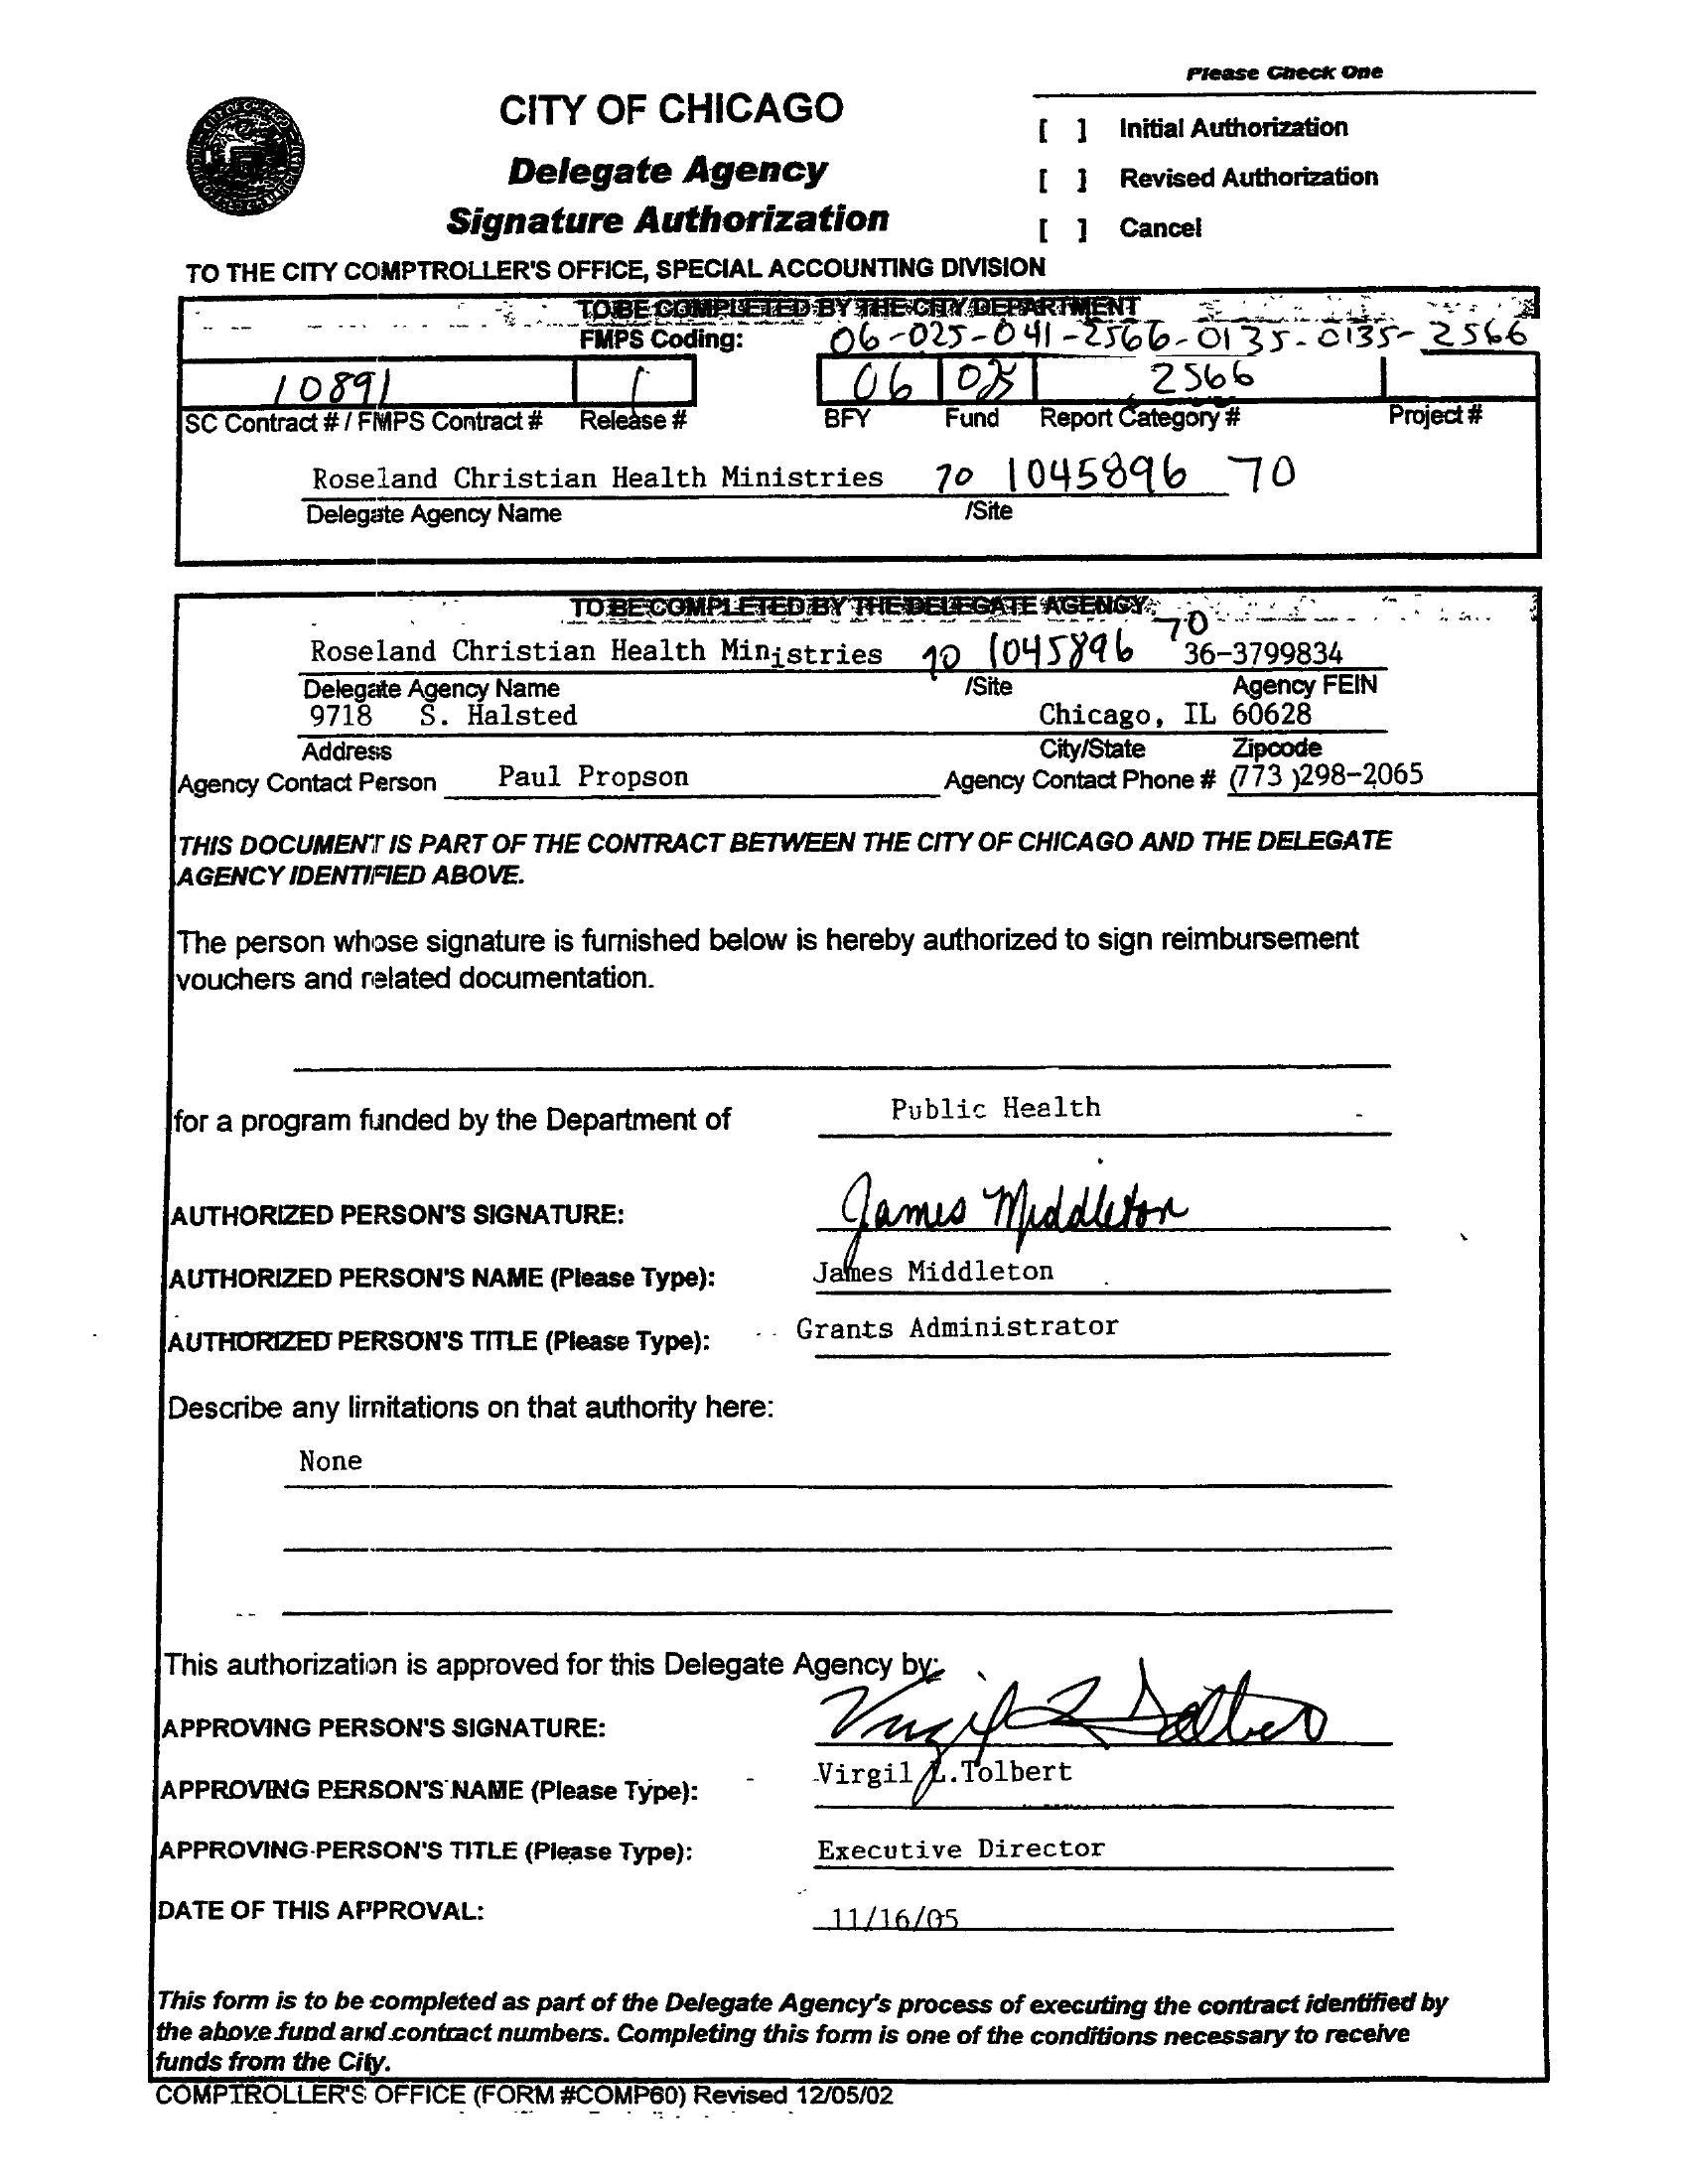 Please Check One
CITY OF CHICAGO
[ ] Initial Authorization
Delegate Agency
[ ] Revised Authorization
Signature Authorization
[ ] Cancel
TO THE CITY COMPTROLLER'S OFFICE, SPECIAL ACCOUNTING DIVISION
TO BE COMPLETED BY THE CITY DEPARTMENT
FMPS Coding: 06-025-041-2566-0135-0135-2566
10891 1 06 025 2566
SC Contract # / FMPS Contract # Release # BFY Fund Report Category # Project #
Roseland Christian Health Ministries 70 1045896 70
Delegate Agency Name /Site
TO BE COMPLETED BY THE DELEGATE AGENCY
Roseland Christian Health Ministries 10 1045896 70 36-3799834
Delegate Agency Name /Site Agency FEIN
9718 S. Halsted Chicago, IL 60628
Address City/State Zipcode
Agency Contact Person Paul Propson Agency Contact Phone # (773 )298-2065
THIS DOCUMENT IS PART OF THE CONTRACT BETWEEN THE CITY OF CHICAGO AND THE DELEGATE
AGENCY IDENTIFIED ABOVE.
The person whose signature is furnished below is hereby authorized to sign reimbursement
vouchers and related documentation.
for a program funded by the Department of Public Health
AUTHORIZED PERSON'S SIGNATURE: James Middleton
AUTHORIZED PERSON'S NAME (Please Type): James Middleton
AUTHORIZED PERSON'S TITLE (Please Type): Grants Administrator
Describe any limitations on that authority here:
None
This authorization is approved for this Delegate Agency by:
APPROVING PERSON'S SIGNATURE: Virgil L Tolbert
APPROVING PERSON'S NAME (Please Type): Virgil L.Tolbert
APPROVING PERSON'S TITLE (Please Type): Executive Director
DATE OF THIS APPROVAL: 11/16/05
This form is to be completed as part of the Delegate Agency's process of executing the contract identified by
the above fund and contract numbers. Completing this form is one of the conditions necessary to receive
funds from the City.
COMPTROLLER'S OFFICE (FORM #COMP60) Revised 12/05/02